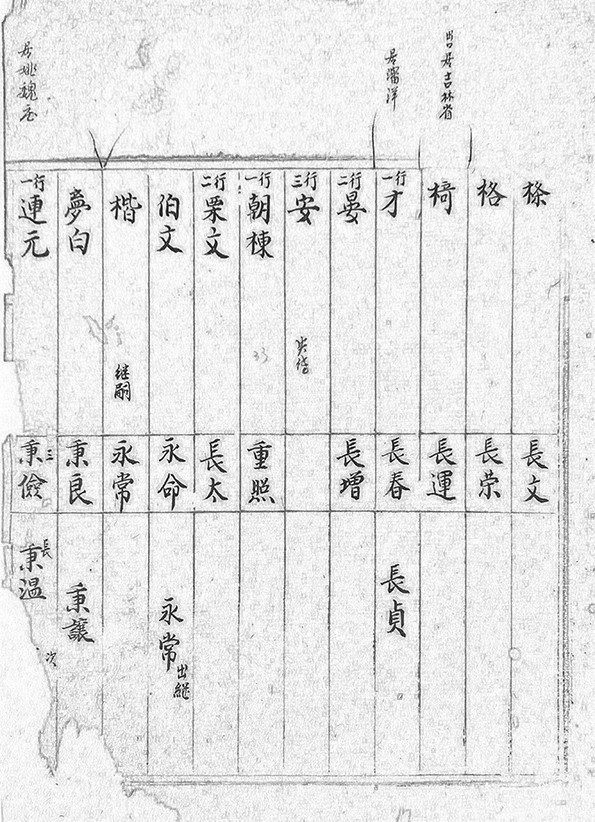 出居吉林省
居瀋洋
居姚魏庄
條
格
椅
一行 才
二行 晏
三行 安
一行 朝棟
二行 栗文
伯文
楷
夢白
一行 連元
继嗣
33
長文
長荣
長運
長春
長增
重照
長太
永命
永常
秉良
三 秉儉
長貞
永常 出継
秉讓
長 秉温
次
17